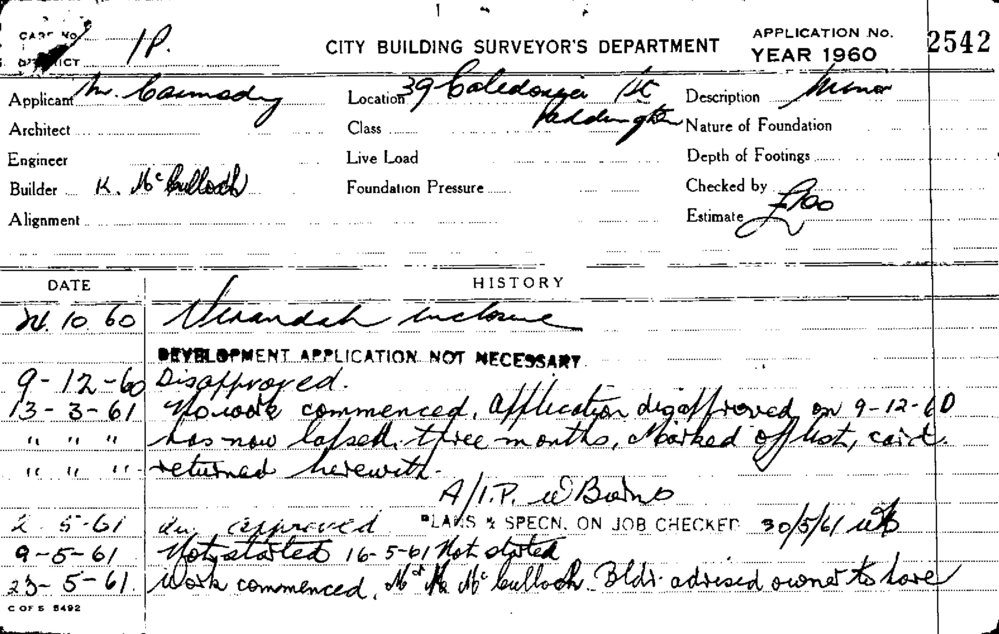 CARD No. 1P. CITY BUILDING SURVEYOR'S DEPARTMENT APPLICATION No. 2542
DISTRICT YEAR 1960
Applicant M. Carmody Location 39 Caledonia St Paddington Description Minor
Architect Class Nature of Foundation
Engineer Live Load Depth of Footings
Builder K. McCulloch Foundation Pressure Checked by
Alignment Estimate £300
DATE HISTORY
24.10.60 Verandah inclosure
DEVELOPMENT APPLICATION NOT NECESSARY
9-12-60 Disapproved.
13-3-61 No work commenced. Application disapproved on 9-12-60
" " " has now lapsed three months. Marked off list, card
" " " returned herewith.
A/I.P. W Burns
2.5.61 approved PLANS & SPECN. ON JOB CHECKED 30/5/61 WB
9-5-61 Not started 16-5-61 Not started
23-5-61. Work commenced. Mr K McCulloch. Bldr. advised owner to have
C OF S 5492